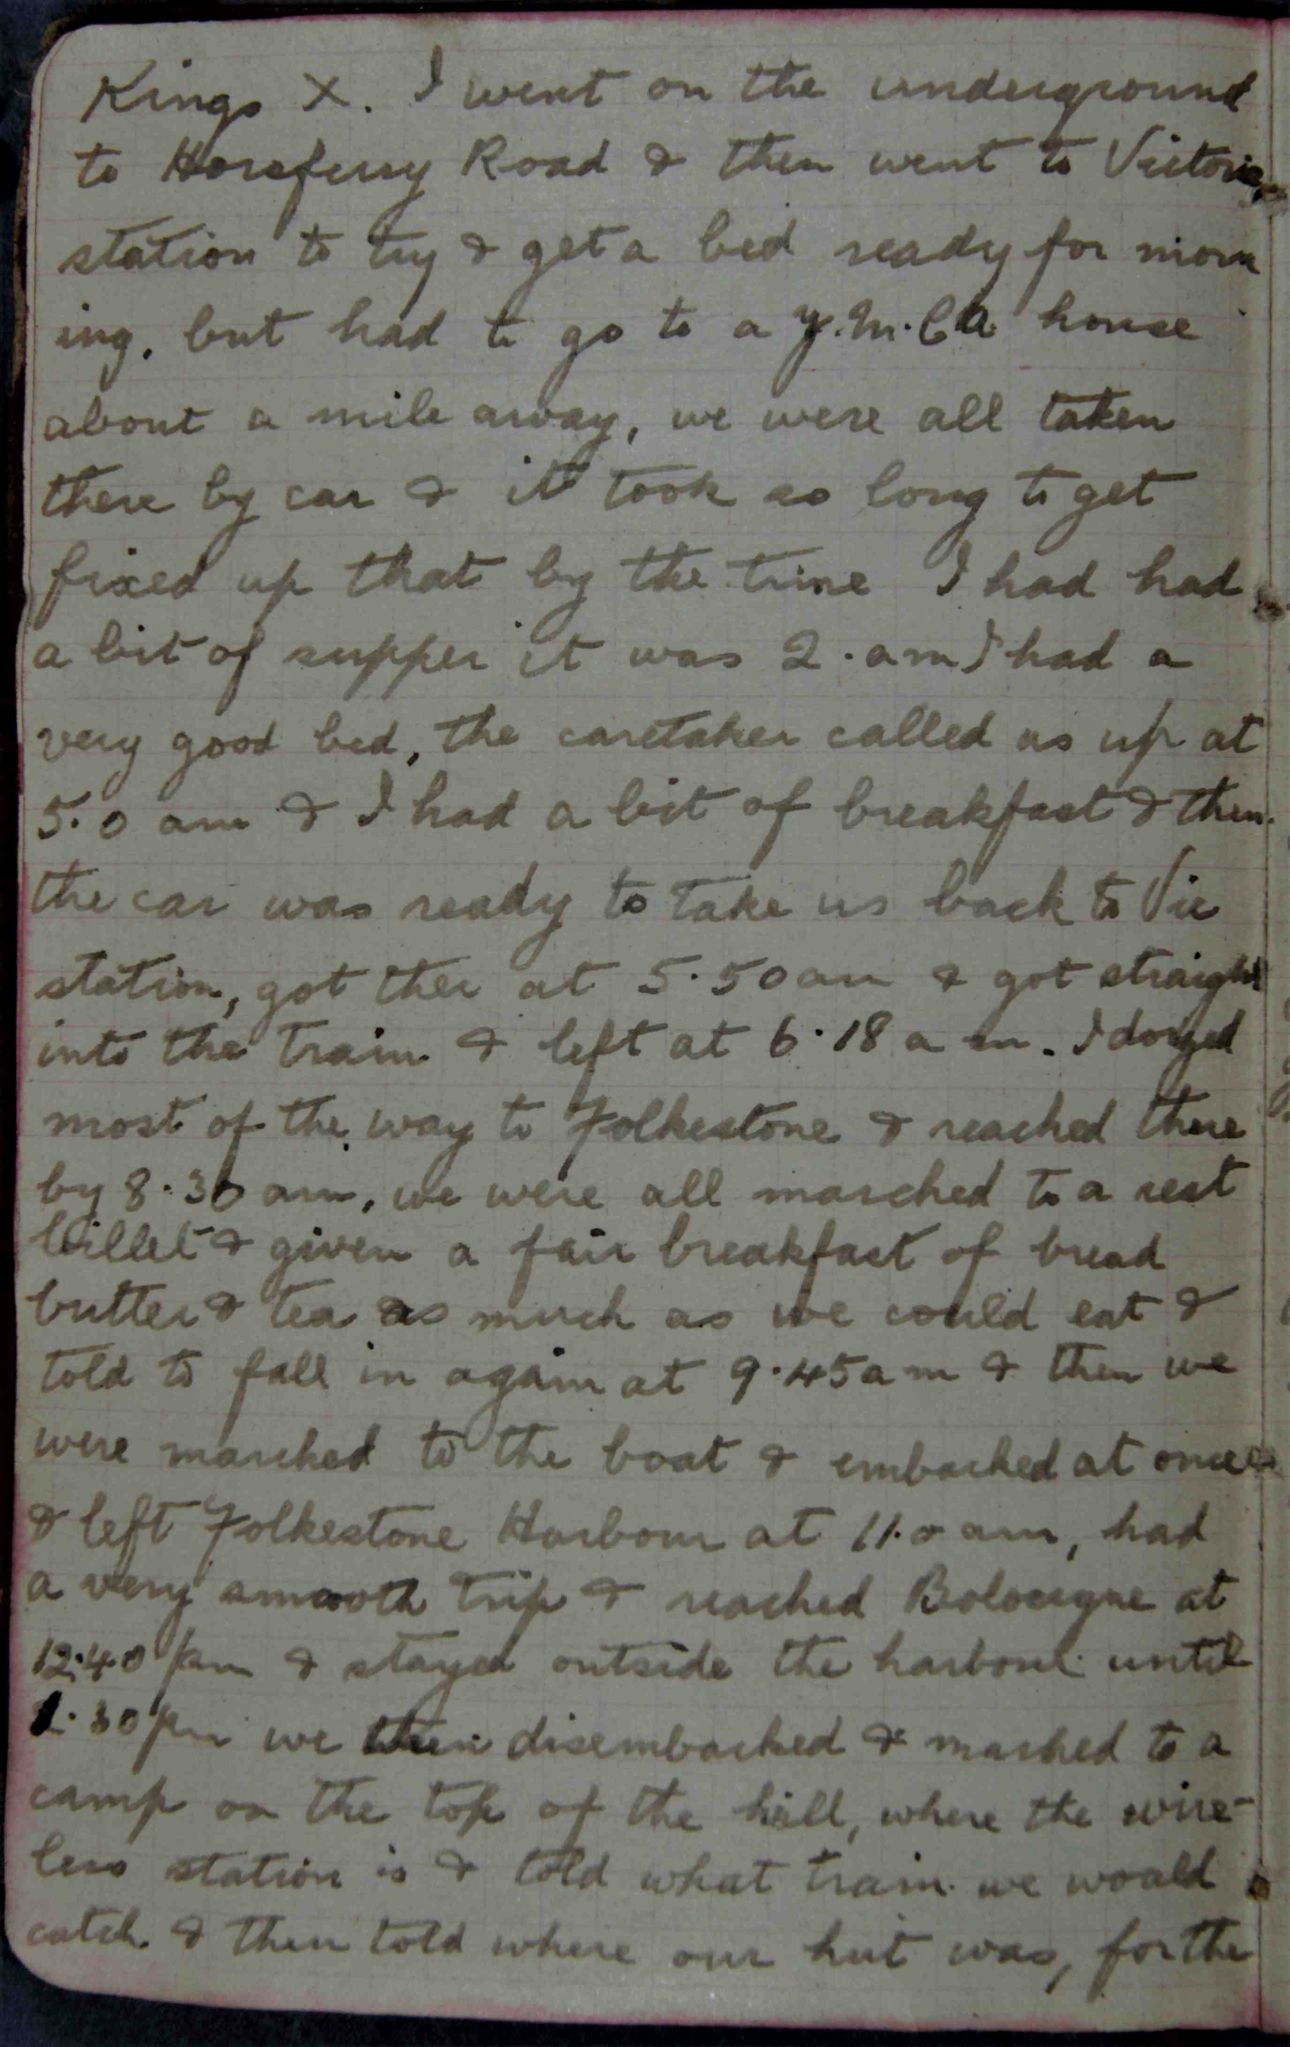 Kings X. I went on the underground
to Horseferry Road & then went to Victoria
station to try & get a bed ready for morn
ing, but had to go to a Y.M.C.A. house
about a mile away, we were all taken
there by car & it took so long to get
fixed up that by the time I had had
a bit of supper it was 2.am I had a
very good bed, the caretaker called us up at
5.0 am & I had a bit of breakfast & then
the car was ready to take us back to Vic
station, got ther at 5.50am & got straight
into the train & left at 6.18 a m. I dozed
most of the way to Folkestone & reached there
by 8.30 am, we were all marched to a rest
billet & given a fair breakfast of bread
butter & tea as much as we could eat &
told to fall in again at 9.45am & then we
were marched to the boat & embarked at once
& left Folkestone Harbour at 11.0 am, had
a very smooth trip & reached Bolougne at
12.40 pm & stayed outside the harbour until
1.30pm we then disembarked & marhed to a
camp on the top of the hill, where the wire-
less station is & told what train we would
catch & then told where our hut was, for the